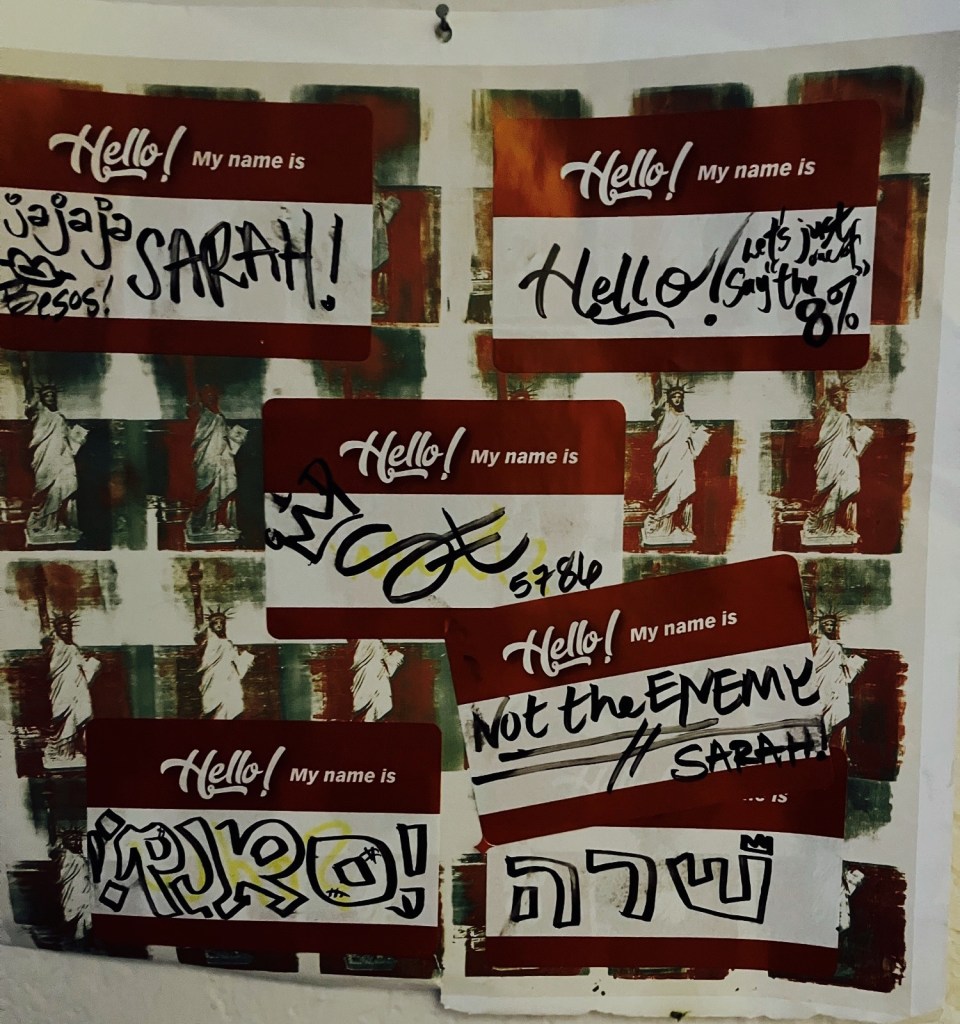 Hello! My name is
jajaja SARAH!
Besos!
Hello! My name is
Hello! Let's just
say "the
8%"
Hello! My name is
5786
Hello! My name is
Not the ENEMY
// SARAH!
Hello! My name is
is
שרה